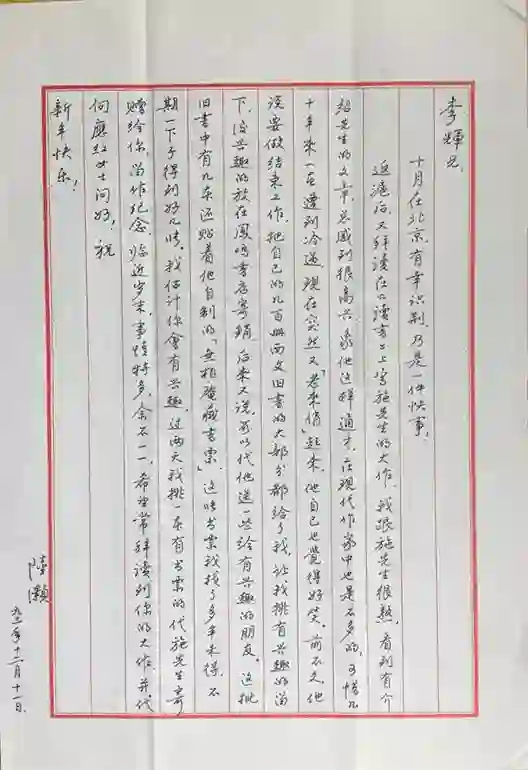 李輝兄，
十月在北京有幸识荆，乃是一件快事。
返滬后，又拜读在《读書》上写施先生的大作，我跟施先生很熟，看到有介
绍先生的文章，总感到很高兴，象他这样通才，在现代作家中也是不多的，可惜几
十年来一直遭到冷遇，现在突然又“老来俏”起来，他自己也覺得好笑。前不久，他
说要做结束工作，把自己的几百册西文旧書的大部分都给了我，让我挑有兴趣的留
下，没兴趣的放在鳳鸣書店寄銷，后来又说，可以代他送一些给有兴趣的朋友。这批
旧書中有几本还贴着他自制的“無相庵藏書票”，这時書票我找了多年未得，不
期一下子得到好几時。我估计你會有兴趣，过两天我挑一本有書票的代施先生寄
赠给你，留作纪念。临近岁末，事情特多，余不一一，希望常拜读到你的大作，并代
向應红女士问好！祝
新年快乐！
陸灏
九二年十二月十一日